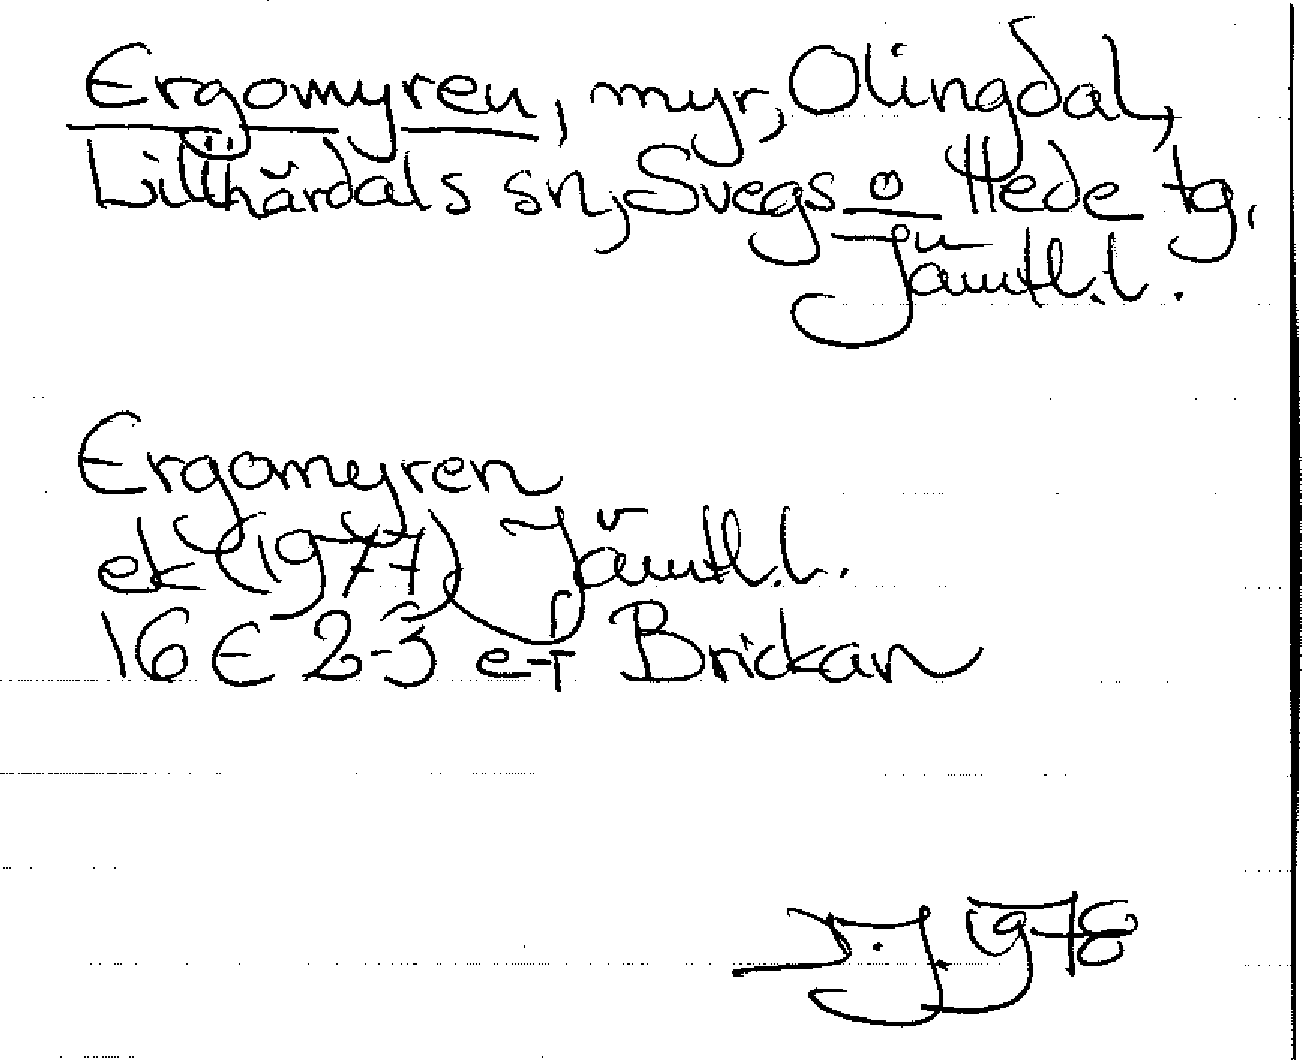 Ergomyren, myr, Olingdal,
Lillhärdals sn, Svegs o Hede tg,
Jämtl.l.
Ergomyren
ek (1977) Jämtl.l.
16 E 2-3 e-f Brickan
1978